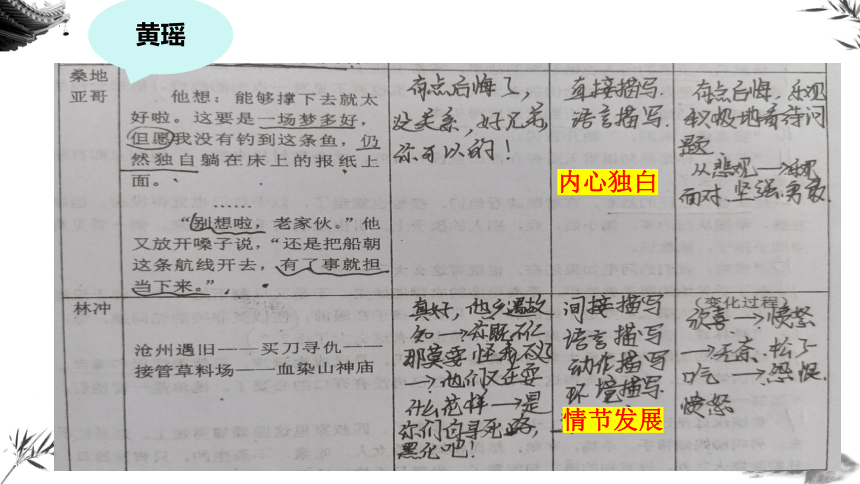 黄瑶
桑地
亚哥
他想：能够撑下去就太
好啦。这要是一场梦多好，
但愿我没有钓到这条鱼，仍
然独自躺在床上的报纸上
面。
……
“别想啦，老家伙。”他
又放开嗓子说，“还是把船朝
这条航线开去，有了事就担
当下来。”
有点后悔了，
没关系，好兄弟，
你可以的！
直接描写
语言描写
内心独白
有点后悔，乐观
积极地看待问
题
从悲观→乐观
面对.坚强勇敢.
林冲
沧州遇旧——买刀寻仇——
接管草料场——血染山神庙
真好，他乡遇故
知→你既不仁
那莫要怪我不义
→他们又在耍
什么花样→是
你们自寻死路，
黑化吧！
间接描写
语言描写
动作描写
环境描写
情节发展
（变化过程）
欣喜→愤怒
→无奈.松了
口气→怨恨.
愤怒